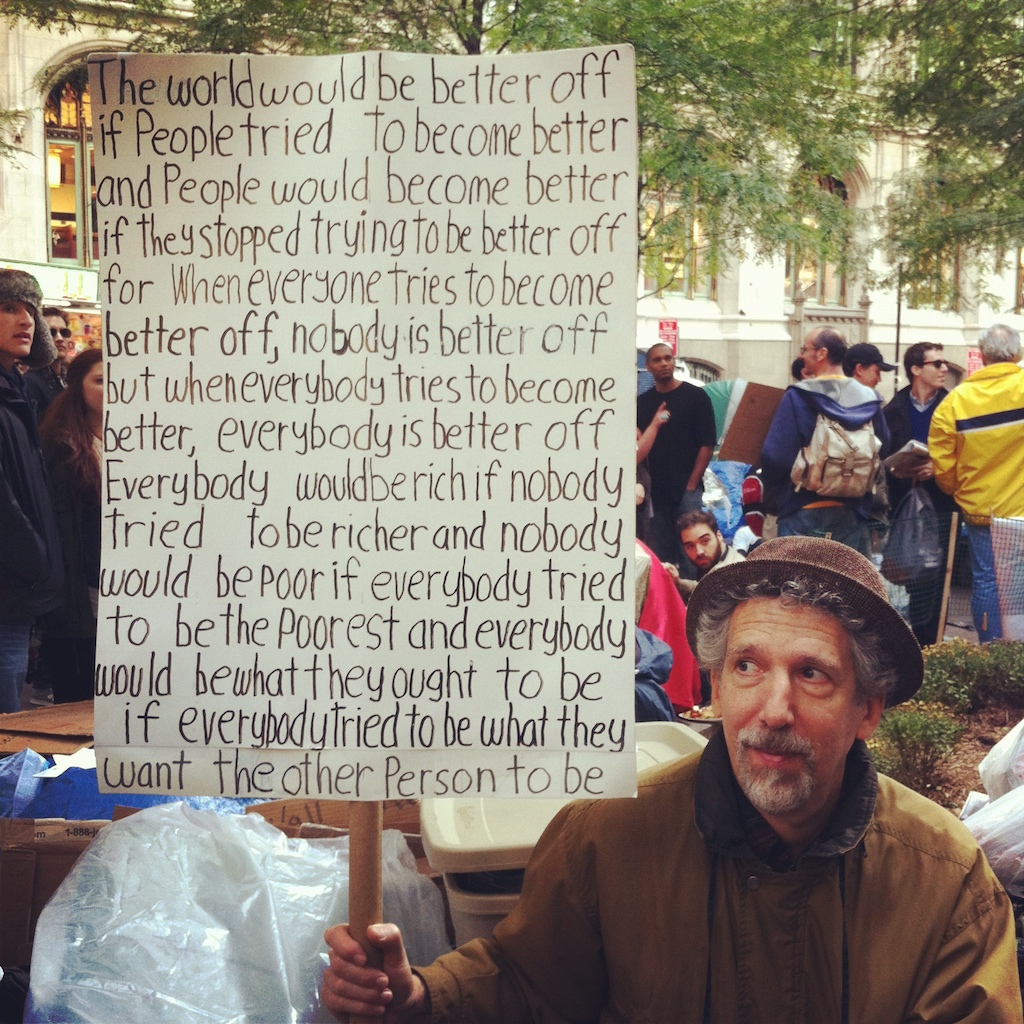 The world would be better off
if People tried to become better
and People would become better
if they stopped trying to be better off
for When everyone tries to become
better off, nobody is better off
but when everybody tries to become
better, everybody is better off
Everybody would be rich if nobody
tried to be richer and nobody
would be poor if everybody tried
to be the poorest and everybody
would be what they ought to be
if everybody tried to be what they
want the other Person to be